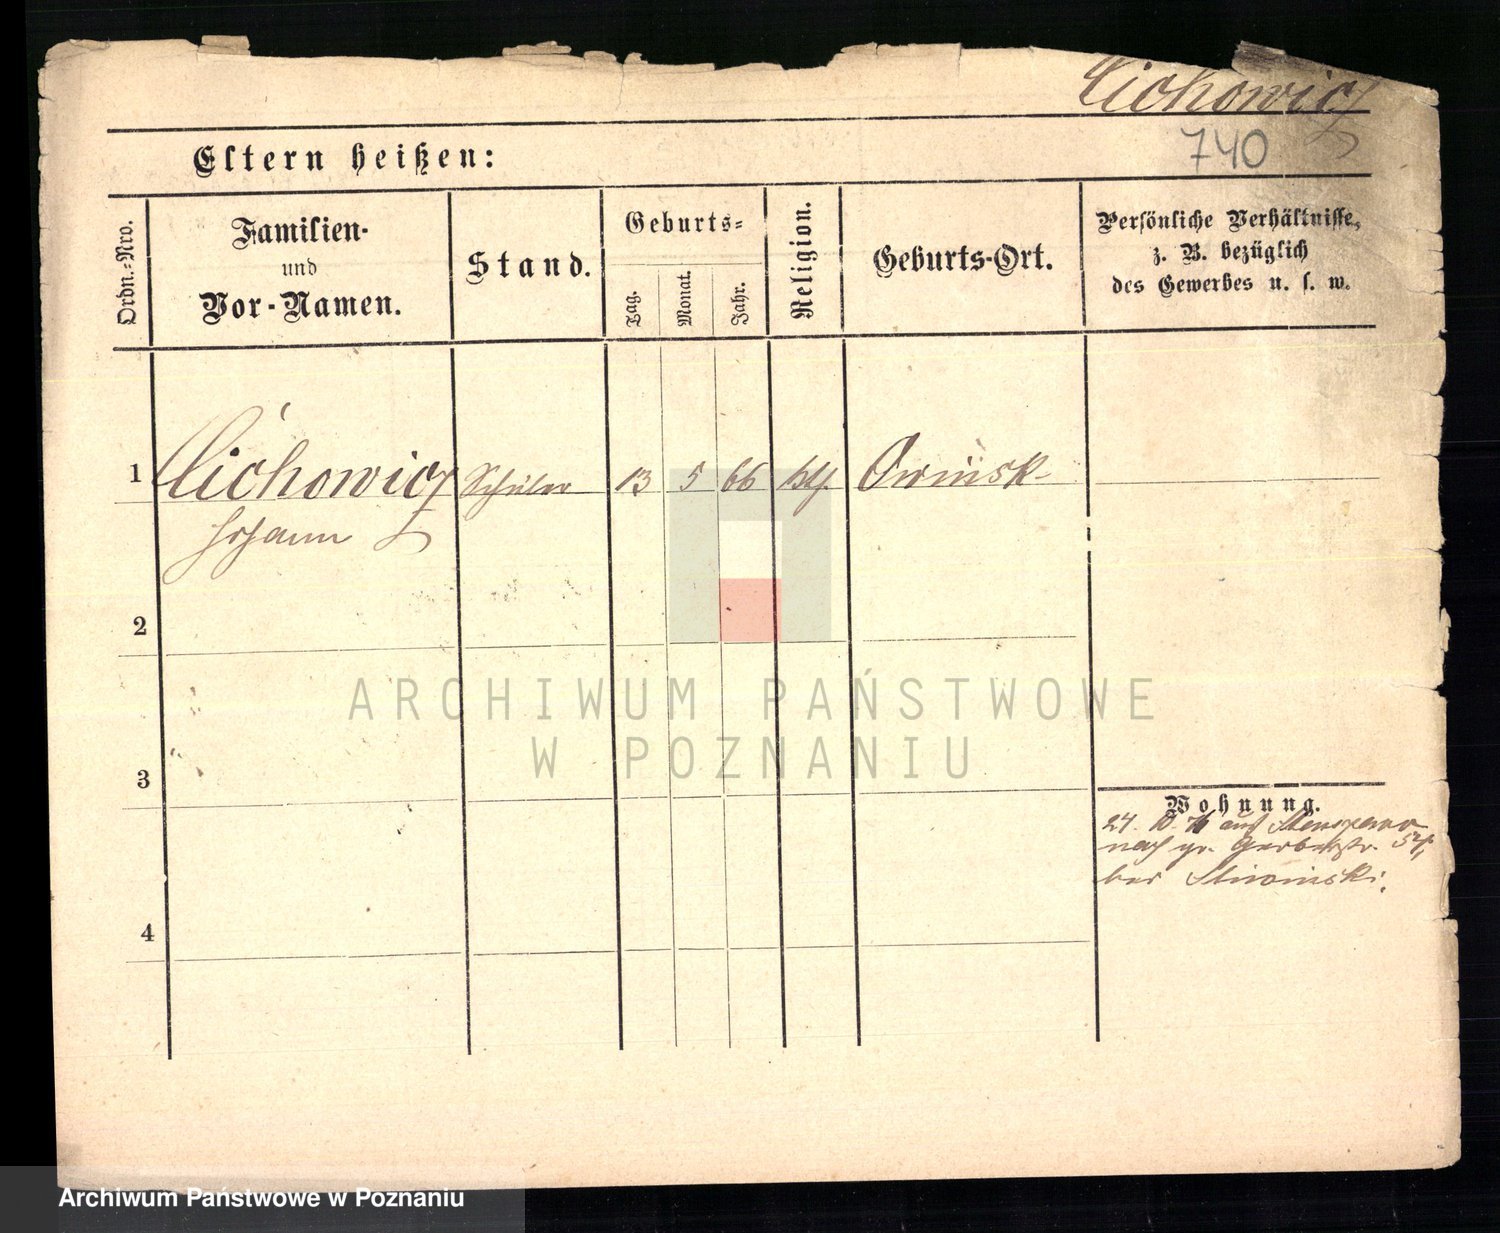 Cichowicz
740
Eltern heißen:
Ordn.-Nro.
Familien-
und
Vor-Namen.
Stand.
Geburts-
Tag.
Monat.
Jahr.
Religion.
Geburts-Ort.
Persönliche Verhältnisse,
z. B. bezüglich
des Gewerbes u. s. w.
1 Cichowicz Schüler 13 5 66 kth. Owinsk
Johann
2
3
4
Wohnung.
24. 10. 76 aus
nach gr. Gerberstr. 54,
bei
ARCHIWUM PAŃSTWOWE
W POZNANIU
Archiwum Państwowe w Poznaniu